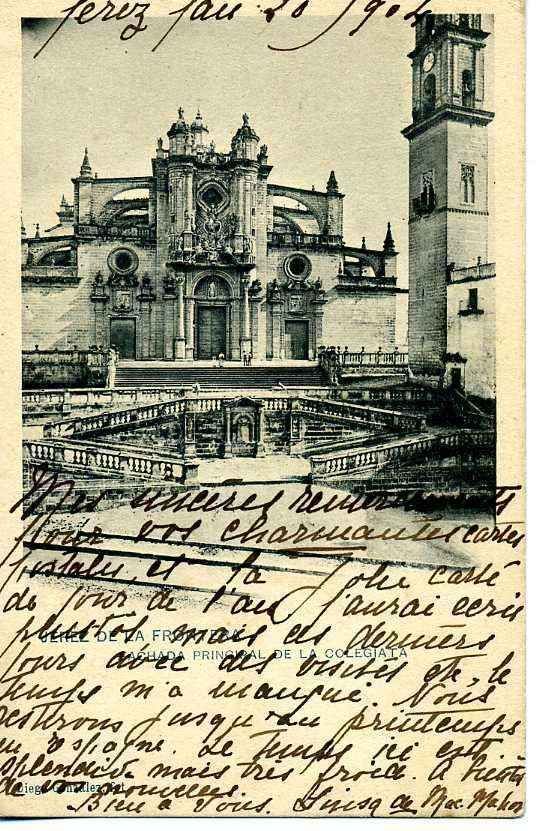 Jerez Jan 20 1904
Mes sincères remerciements
pour vos charmantes cartes
postales, et la jolie carte
du jour de l'an J'aurai écris
plustôt mais ces derniers
JEREZ DE LA FRONTERA
FACHADA PRINCIPAL DE LA COLEGIATA
jours avec des visites etc, le
temps m'a manqué. Nous
resterons jusqu'au printemps
en Espagne. Le temps ici est
splendide mais très froid. A bientôt
de nouvelles
Diego González, fot.
Bien à Vous. de Mac-Mahon